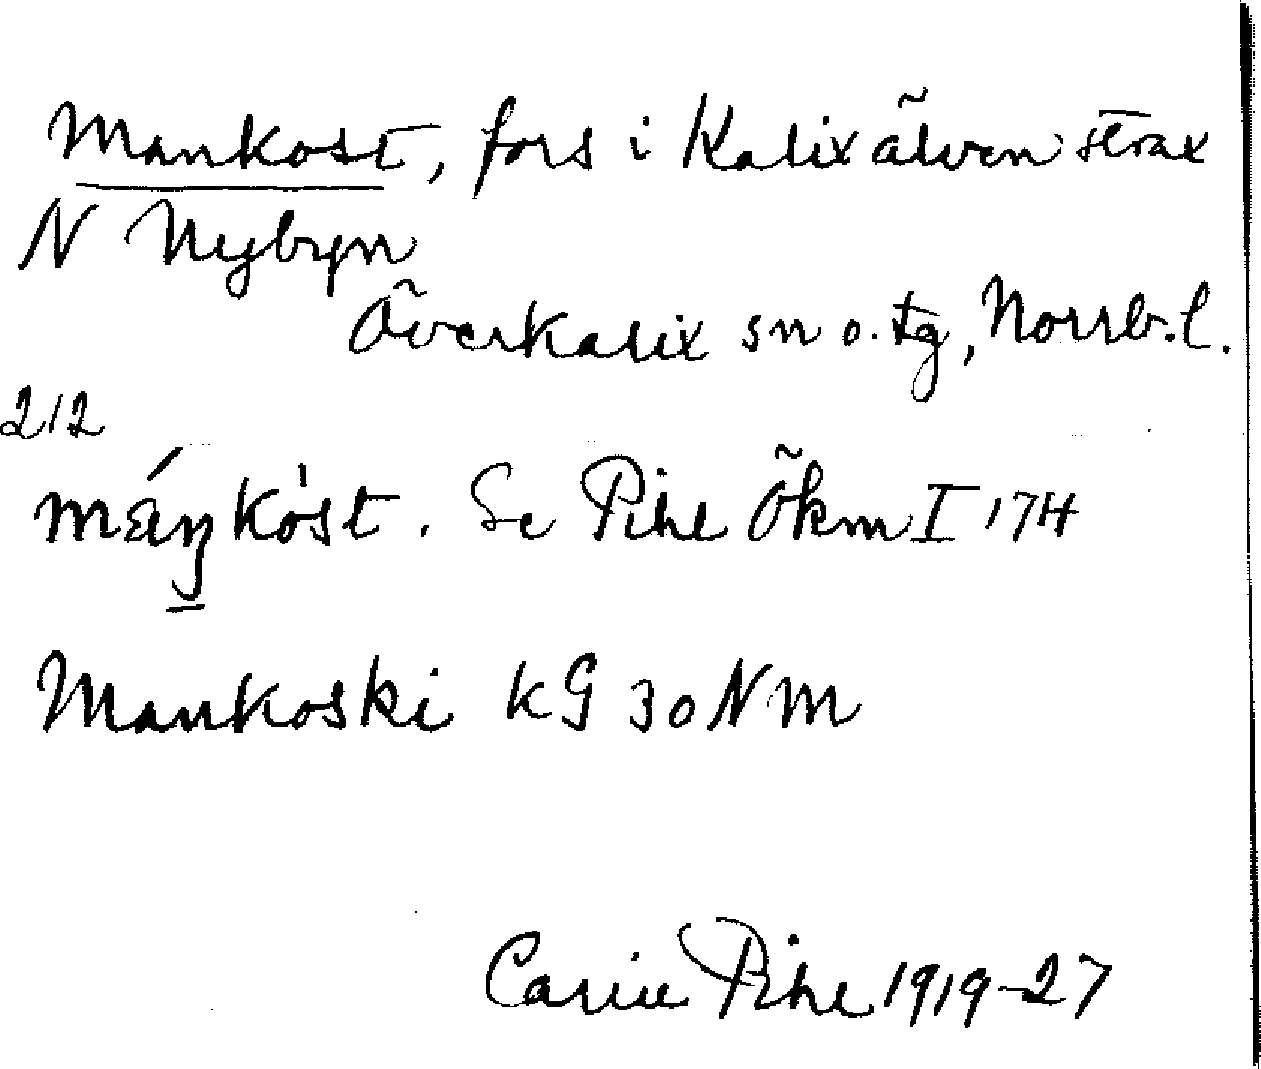 Mankost, fors i Kalixälven strax
N Nybyn
Överkalix sn o. tg, Norrb. l.
212
máŋkòst. Se Pihl Ökm I 174
Mankoski KG 30 NM
Carin Pihl 1919-27